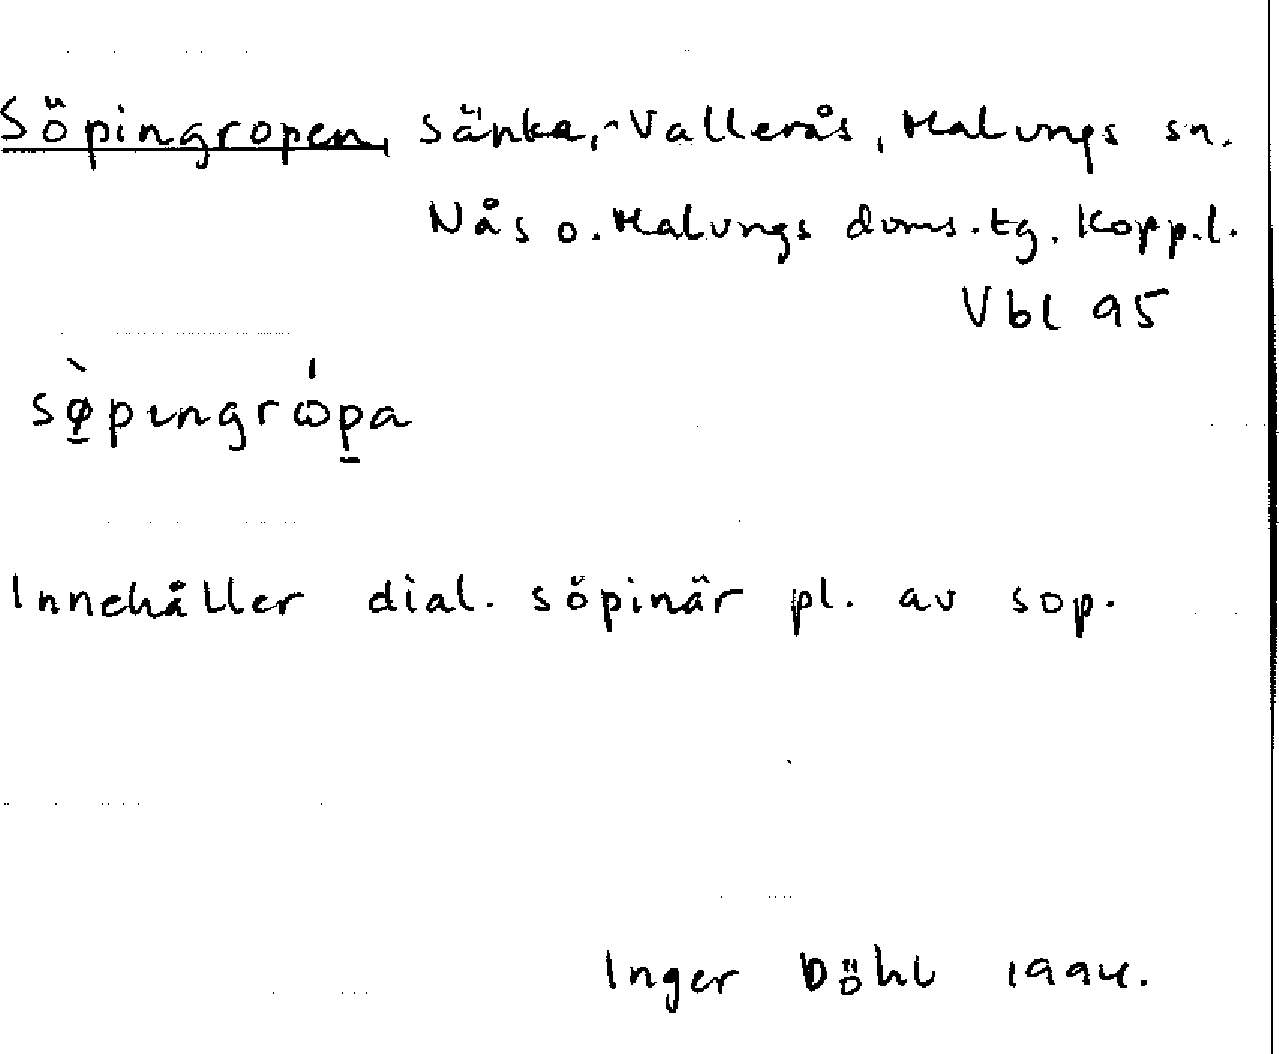 Söpingropen, sänka, Vallerås, Malungs sn.
Nås o. Malungs doms. tg. Kopp.l.
Vbl 95
sø̱̀pɩngrω̍p̱a
Innehåller dial. söpinär pl. av sop.
Inger Döhl 1994.